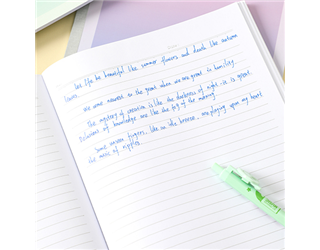 Let life be beautiful like summer flowers and death like autumn
leaves.
We come nearest to the great when we are great in humility.
The mystery of creation is like the darkness of night-it is great.
Delusions of knowledge are like the fog of the morning.
Some unseen fingers, like an idle breeze, are playing upon my heart
the music of ripples.